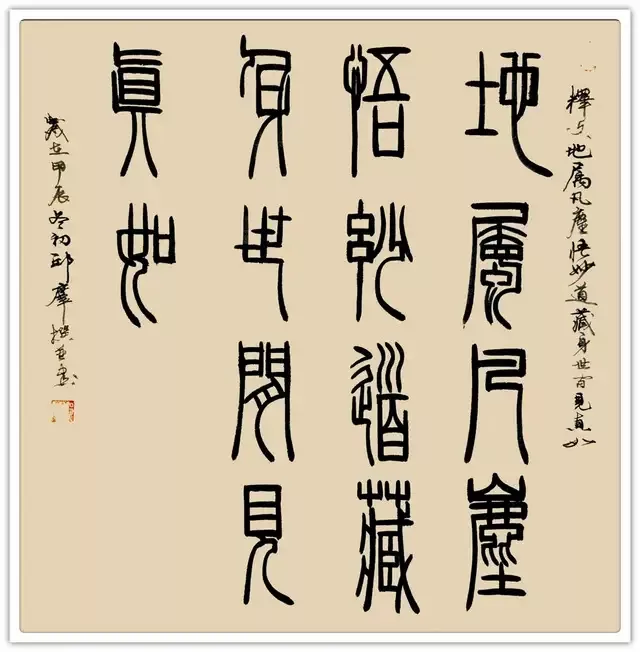 釋文地属凡塵悟妙道藏身世间見真如
地屬凡塵
悟妙道藏
身世間見
眞如
歲在甲辰冬初邱摩撰並書